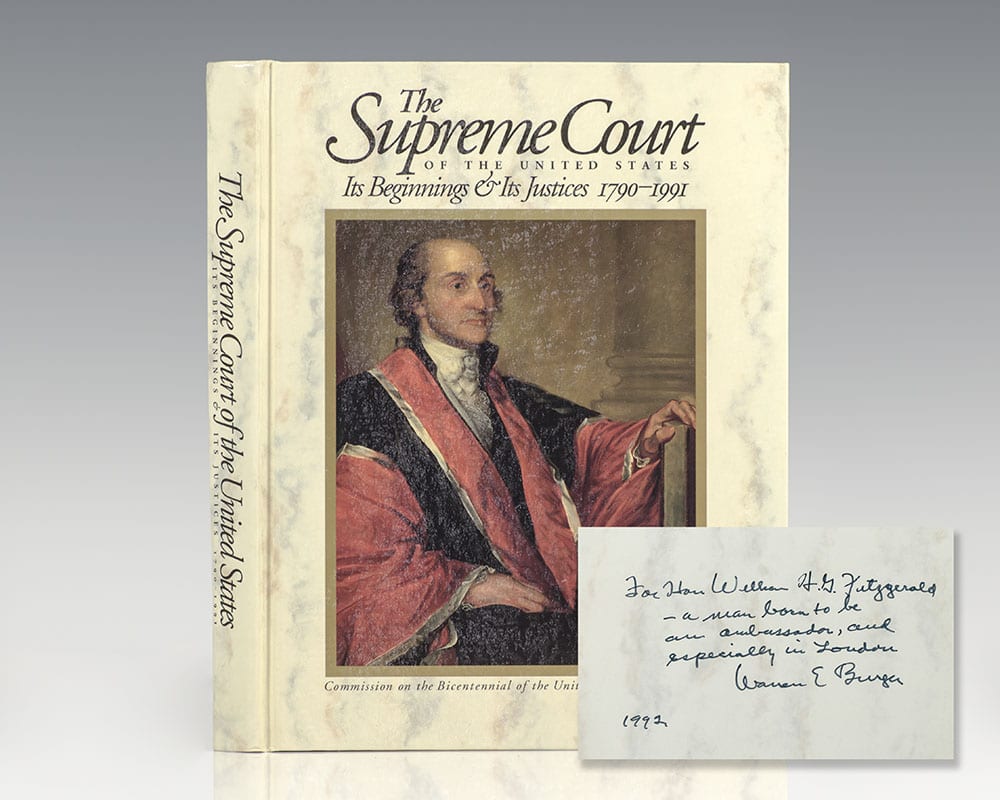 The
Supreme Court
OF THE UNITED STATES
Its Beginnings & Its Justices 1790–1991
Commission on the Bicentennial of the Unit
The Supreme Court of the United States
ITS BEGINNINGS & ITS JUSTICES 1790–1991
For Hon William H.G. Fitzgerald
– a man born to be
an ambassador, and
especially in London
Warren E Burger
1992